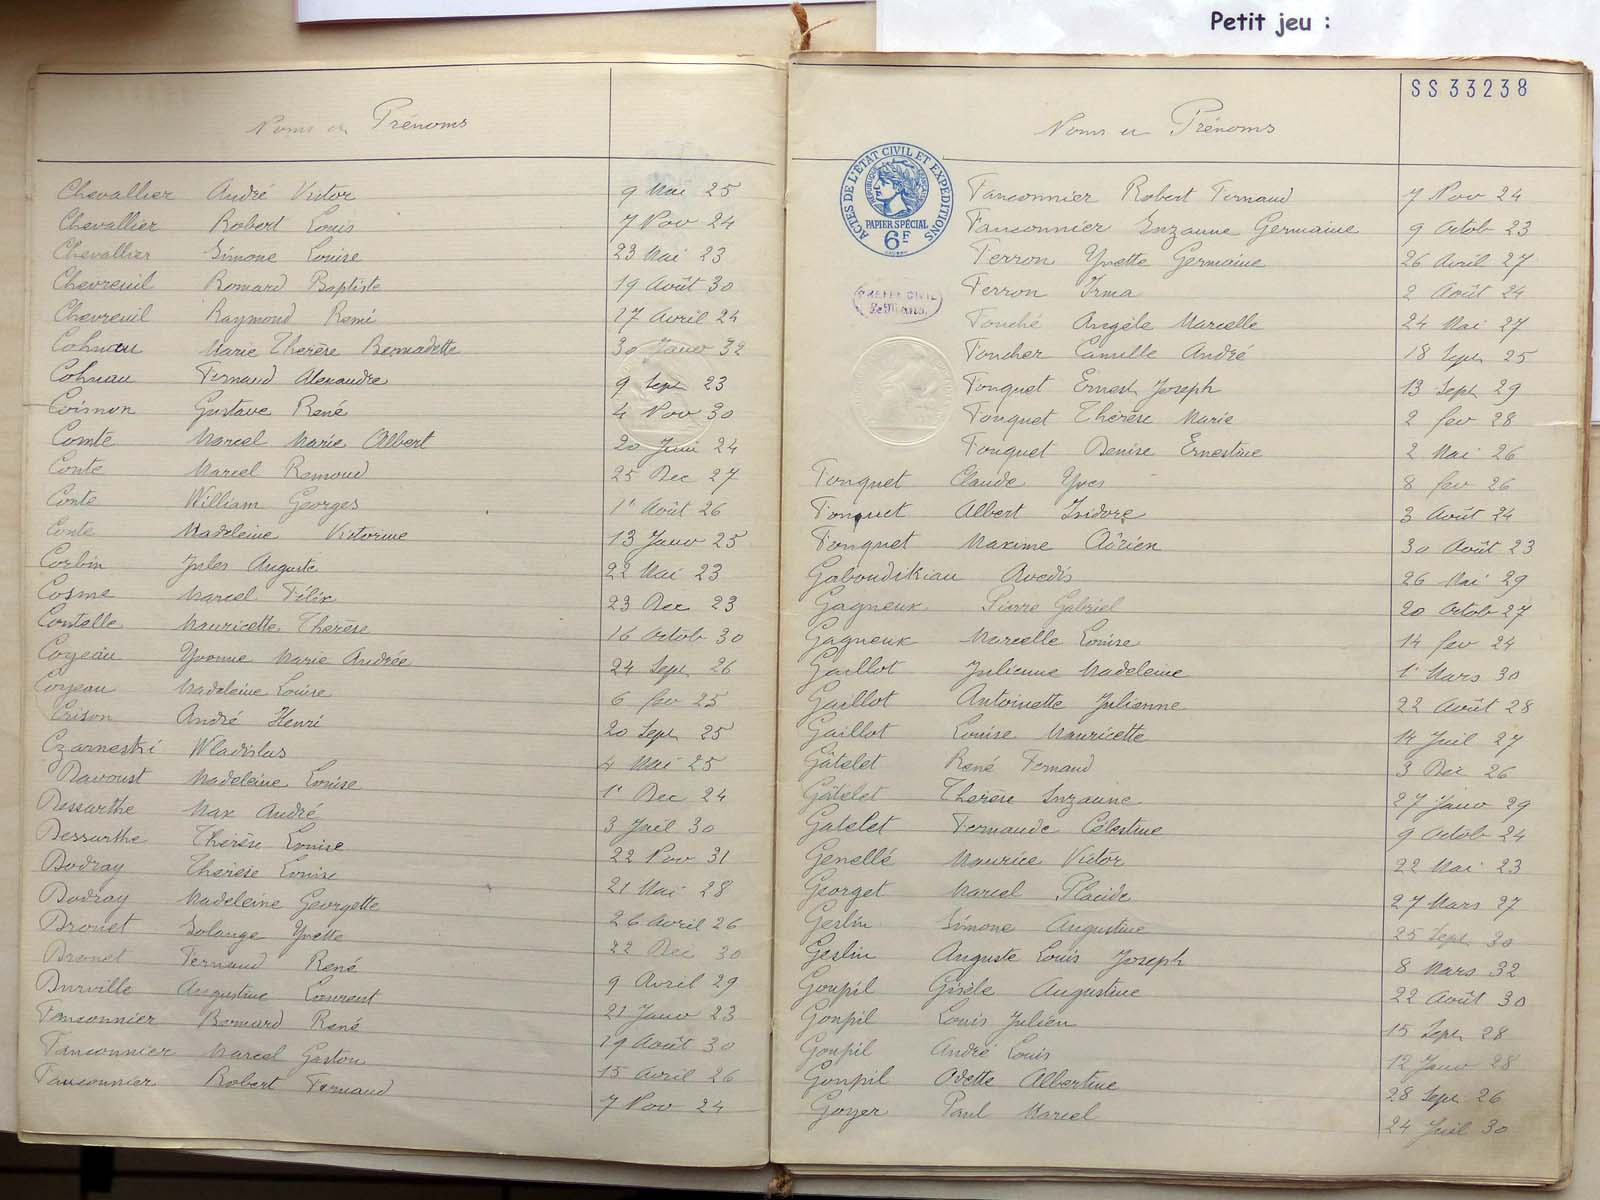 Petit jeu :
Noms et Prénoms
Chevallier André Victor 9 Mai 25
Chevallier Robert Louis 7 Nov 24
Chevallier Simone Louise 23 Mai 23
Chevreuil Bernard Baptiste 19 Août 30
Chevreuil Raymond Remi 17 Avril 24
Cohuau Marie Therèse Bernadette 30 Janv 32
Cohuau Fernand Alexandre 9 Sept 23
Coisnon Gustave René 4 Nov 30
Comte Marcel Marie Albert 20 Juin 24
Conte Marcel Remond 25 Dec 27
Conte William Georges 1er Août 26
Conte Madeleine Victorine 13 Janv 25
Corbin Jules Auguste 22 Mai 23
Cosme Marcel Félix 23 Dec 23
Coutelle Mauricette Therèse 16 Octob 30
Coyeau Yvonne Marie Andrée 24 Sept 26
Coyeau Madeleine Louise 6 fev 25
Crison André Henri 20 Sept 25
Czarneski Wladislas 4 Mai 25
Davoust Madeleine Louise 1er Dec 24
Dessarthe Max André 3 Juil 30
Dessarthe Thérèse Louise 22 Nov 31
Dodray Thérèse Louise 21 Mai 28
Dodray Madeleine Georgette 26 Avril 26
Drouet Solange Yvette 22 Dec 30
Drouet Fernand René 9 Avril 29
Durville Augustine Laurent 21 Janv 23
Fauconnier Bernard René 19 Août 30
Fauconnier Marcel Gaston 15 Avril 26
Fauconnier Robert Fernand 7 Nov 24
SS 33238
Noms et Prénoms
ACTES DE L'ÉTAT CIVIL ET EXPÉDITIONS
PAPIER SPÉCIAL
6F
Fauconnier Robert Fernand 7 Nov 24
Fauconnier Suzanne Germaine 9 Octob 23
Ferron Yvette Germaine 26 Avril 27
Ferron Irma 2 Août 24
Fouché Angèle Marcelle 24 Mai 27
Foucher Camille André 18 Sept 25
Fouquet Ernest Joseph 13 Sept 29
Fouquet Thérèse Marie 2 fev 28
Fouquet Denise Ernestine 2 Mai 26
Fouquet Claude Yves 8 fev 26
Fouquet Albert Isidore 3 Août 24
Fouquet Maxime Adrien 30 Août 23
Gaboudikian Avedis 26 Mai 29
Gagneux Pierre Gabriel 20 Octob 27
Gagneux Marcelle Louise 14 fev 24
Gaillot Julienne Madeleine 1er Mars 30
Gaillot Antoinette Julienne 22 Août 28
Gaillot Louise Mauricette 14 Juil 27
Gâtelet René Fernand 3 Dec 26
Gâtelet Therèse Suzanne 27 Janv 29
Gatelet Fernande Célestine 9 Octob 24
Genellé Maurice Victor 22 Mai 23
Georget Marcel Placide 27 Mars 27
Geslin Simone Augustine 25 Sept 30
Geslin Auguste Louis Joseph 8 Mars 32
Goupil Gisèle Augustine 22 Août 30
Goupil Louis Julien 15 Sept 28
Goupil André Louis 12 Janv 28
Goupil Odette Albertine 28 Sept 26
Goyer Paul Marcel 24 Juil 30